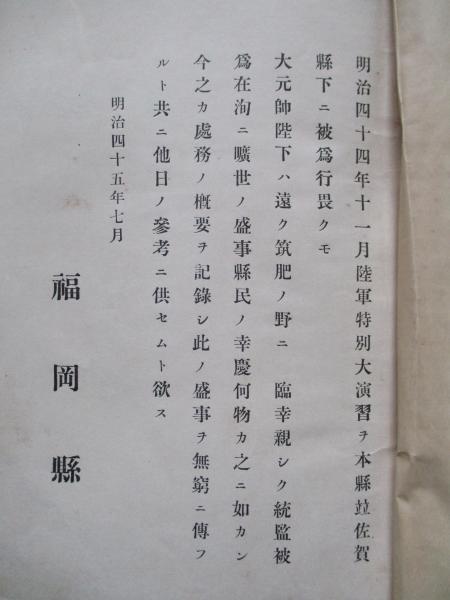 明治四十四年十一月陸軍特別大演習ヲ本縣竝佐賀
縣下ニ被爲行畏クモ
大元帥陛下ハ遠ク筑肥ノ野ニ 臨幸親シク統監被
爲在洵ニ曠世ノ盛事縣民ノ幸慶何物カ之ニ如カン
今之カ處務ノ槪要ヲ記錄シ此ノ盛事ヲ無窮ニ傳フ
ルト共ニ他日ノ參考ニ供セムト欲ス
明治四十五年七月
福岡縣